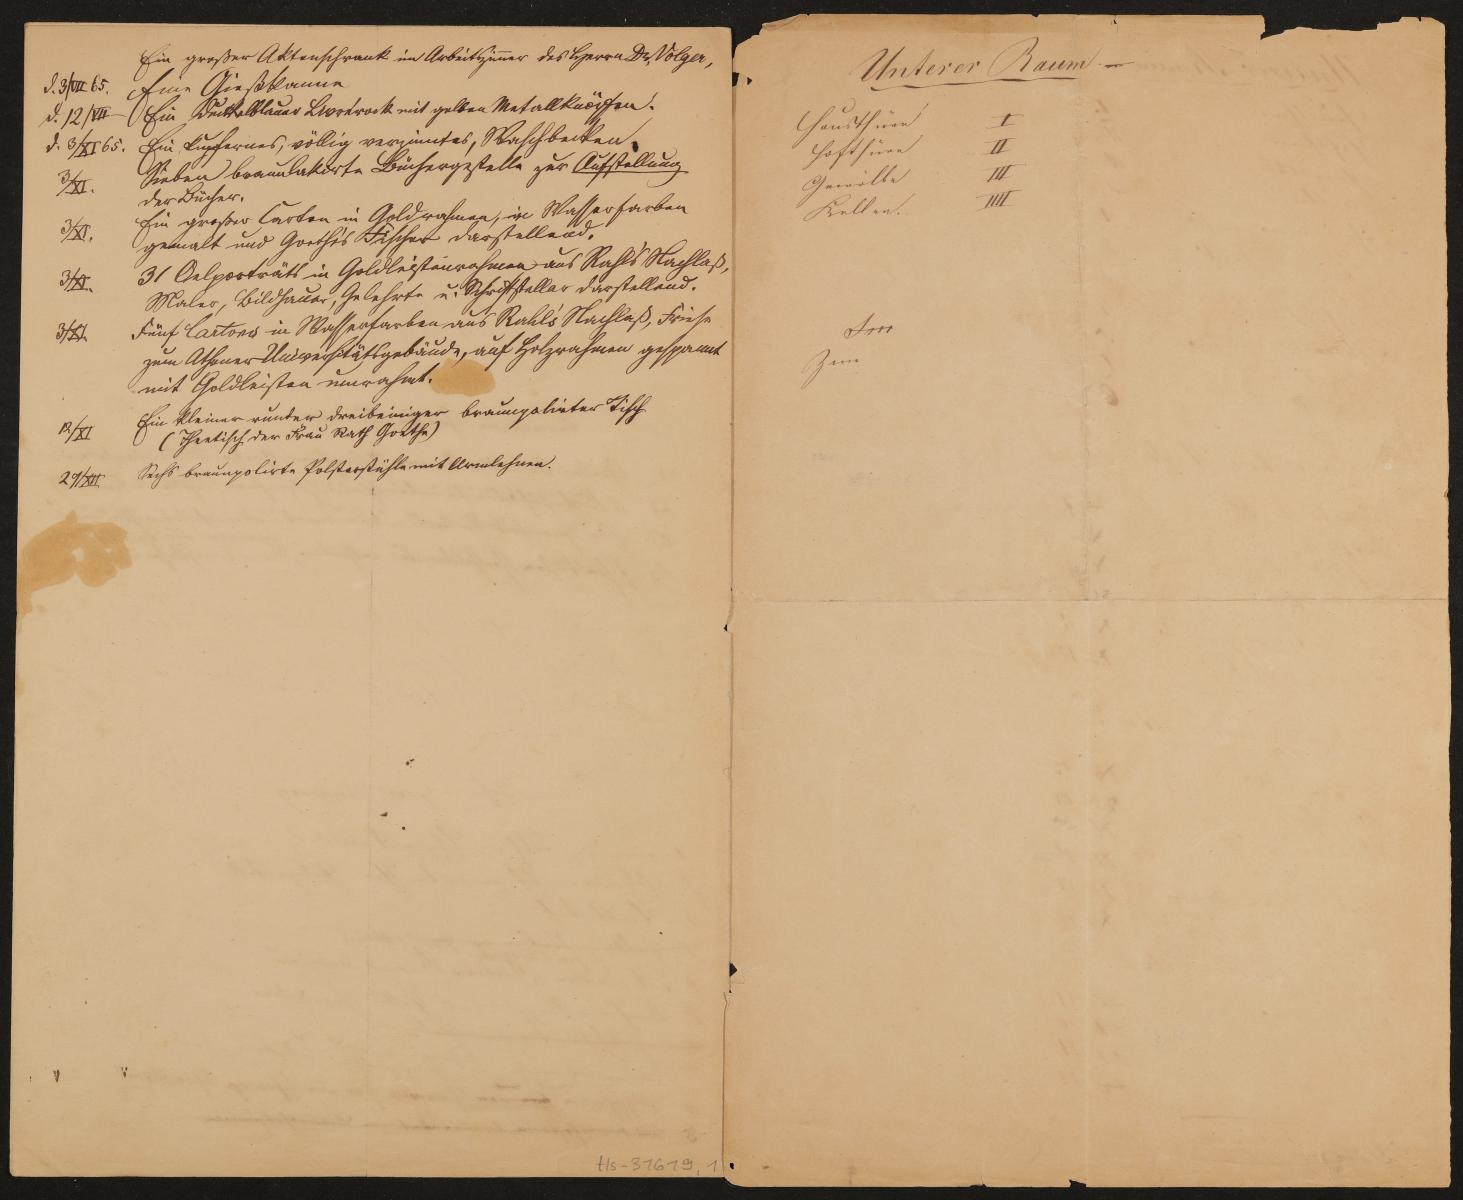 Ein großer Aktenschrank im Arbeitszimmer des Herrn Dr. Volger,
d. 3/VII 65. Eine Gießkanne
d. 12/VII Ein dunkelblauer Livréerock mit gelben Metallknöpfen.
d. 3/XI 65. Ein kupfernes, völlig verzinntes, Waschbecken.
3/XI. Sieben braunlakirte Büchergestelle zur Aufstellung
der Bücher.
3/XI. Ein großer Carton in Goldrahmen, in Wasserfarben
gemalt und Goethe's Fischer darstellend.
3/XI. 31 Oelporträts in Goldleistenrahmen aus Rahl's Nachlaß,
Maler, Bildhauer, Gelehrte u. Schriftsteller darstellend.
3/XI. Fünf Cartons in Wasserfarben aus Rahl's Nachlaß, Friese
zum Athener Universitätsgebäude, auf Holzrahmen gespannt
mit Goldleisten umrahmt.
12/XI Ein kleiner runder dreibeiniger braunpolirter Tisch
(Theetisch der Frau Rath Goethe)
29/XII. Sechs braunpolirte Polsterstühle mit Armlehnen.
Hs-31619,1
Unterer Raum.
Hausthüre I
Hofthüre II
Gewölbe III
Keller. IIII